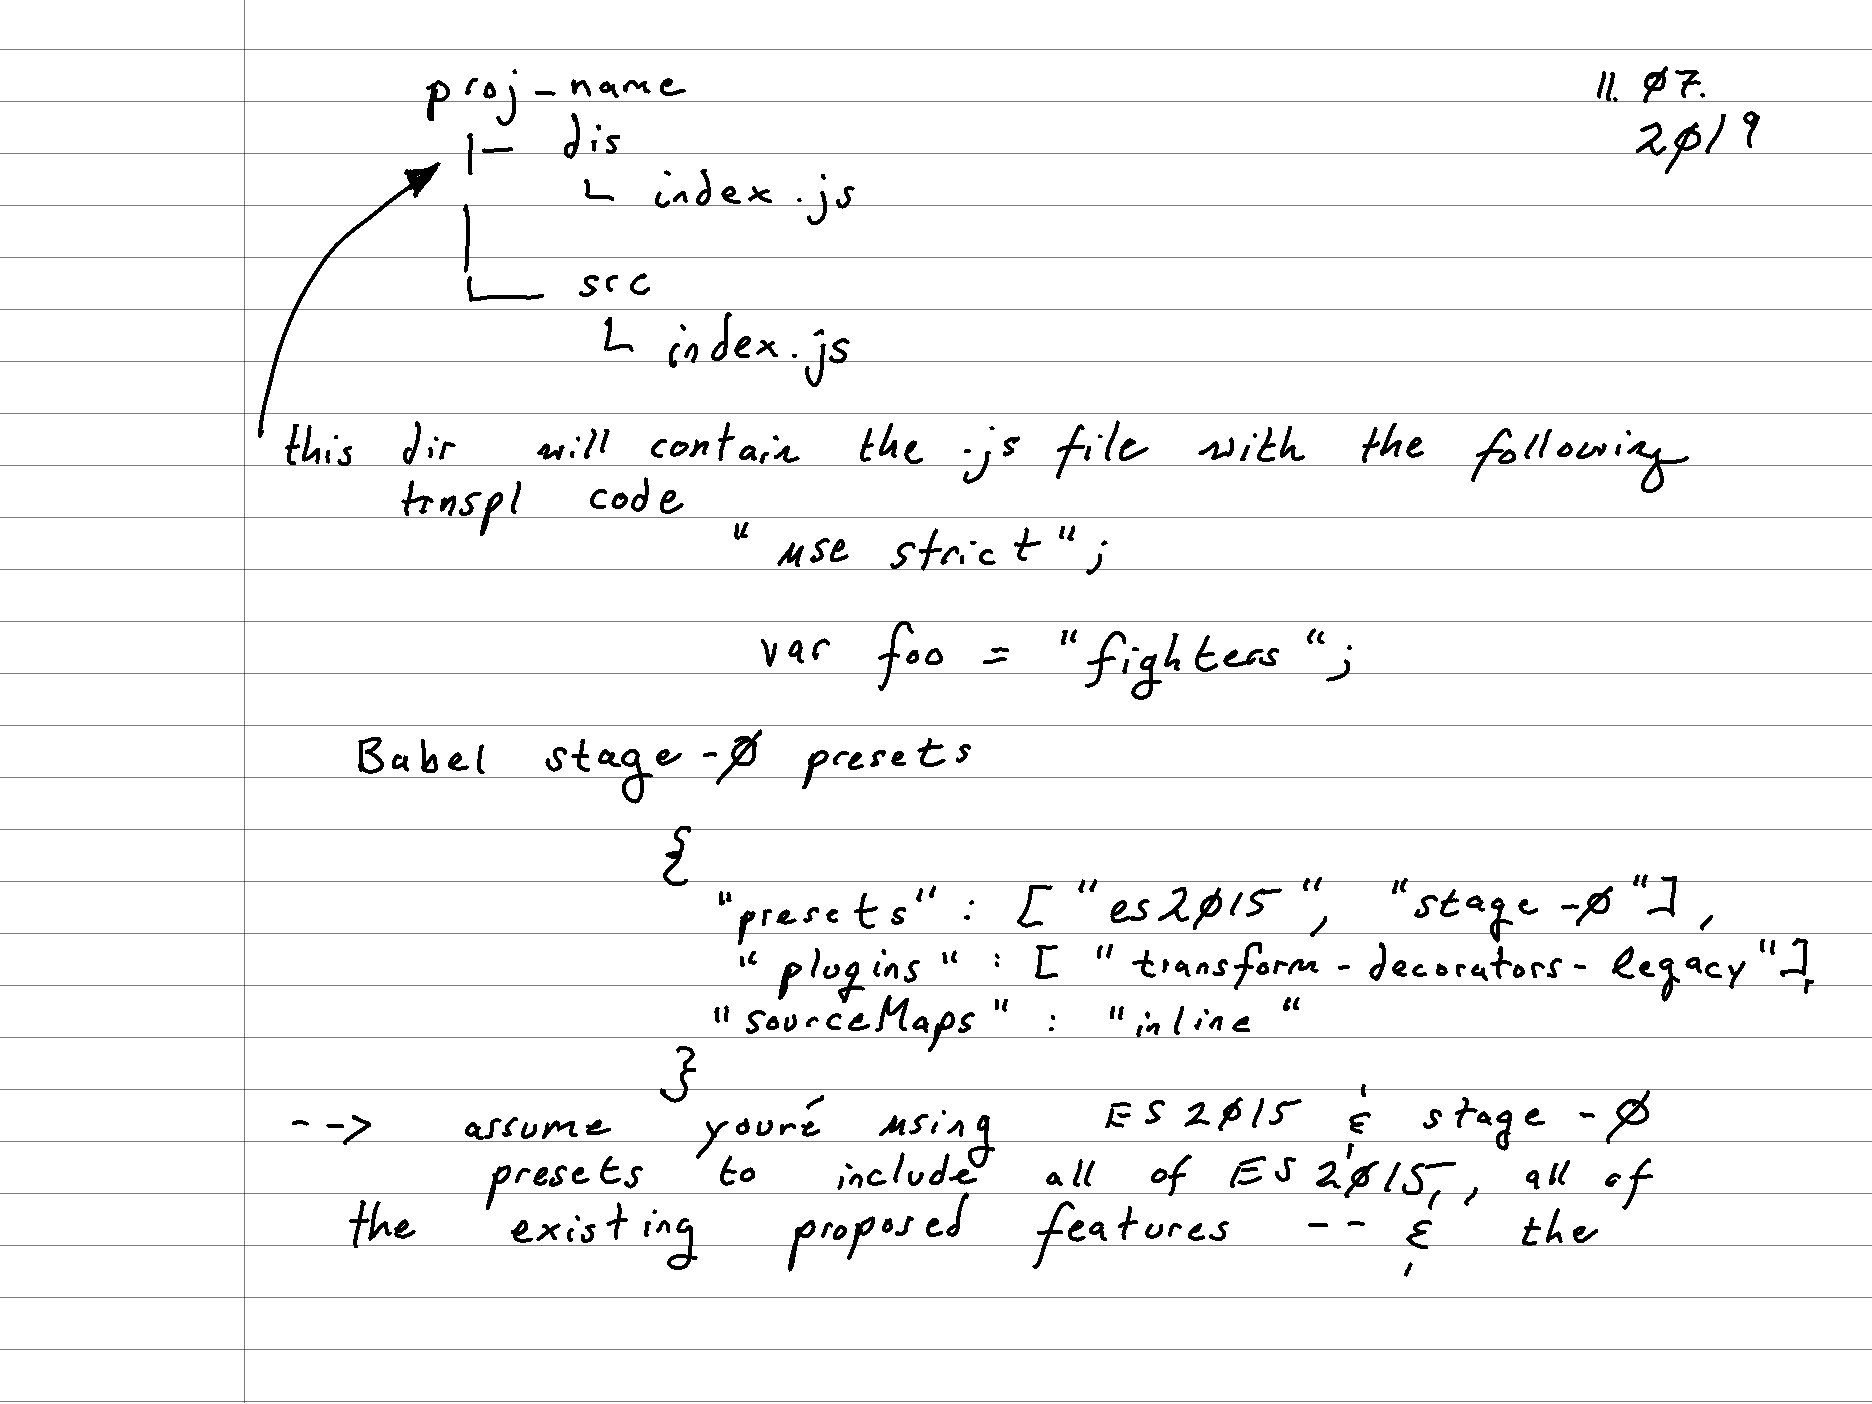 proj-name
11. 07.
2019
|- dis
└ index.js
└ src
└ index.js
this dir will contain the .js file with the following
trnspl code
"use strict";
var foo = "fighters";
Babel stage-0 presets
{
"presets" : ["es2015", "stage-0"],
"plugins" : ["transform-decorators-legacy"],
"sourceMaps" : "inline"
}
--> assume youre' using ES2015 & stage-0
presets to include all of ES2015,, all of
the existing proposed features -- & the